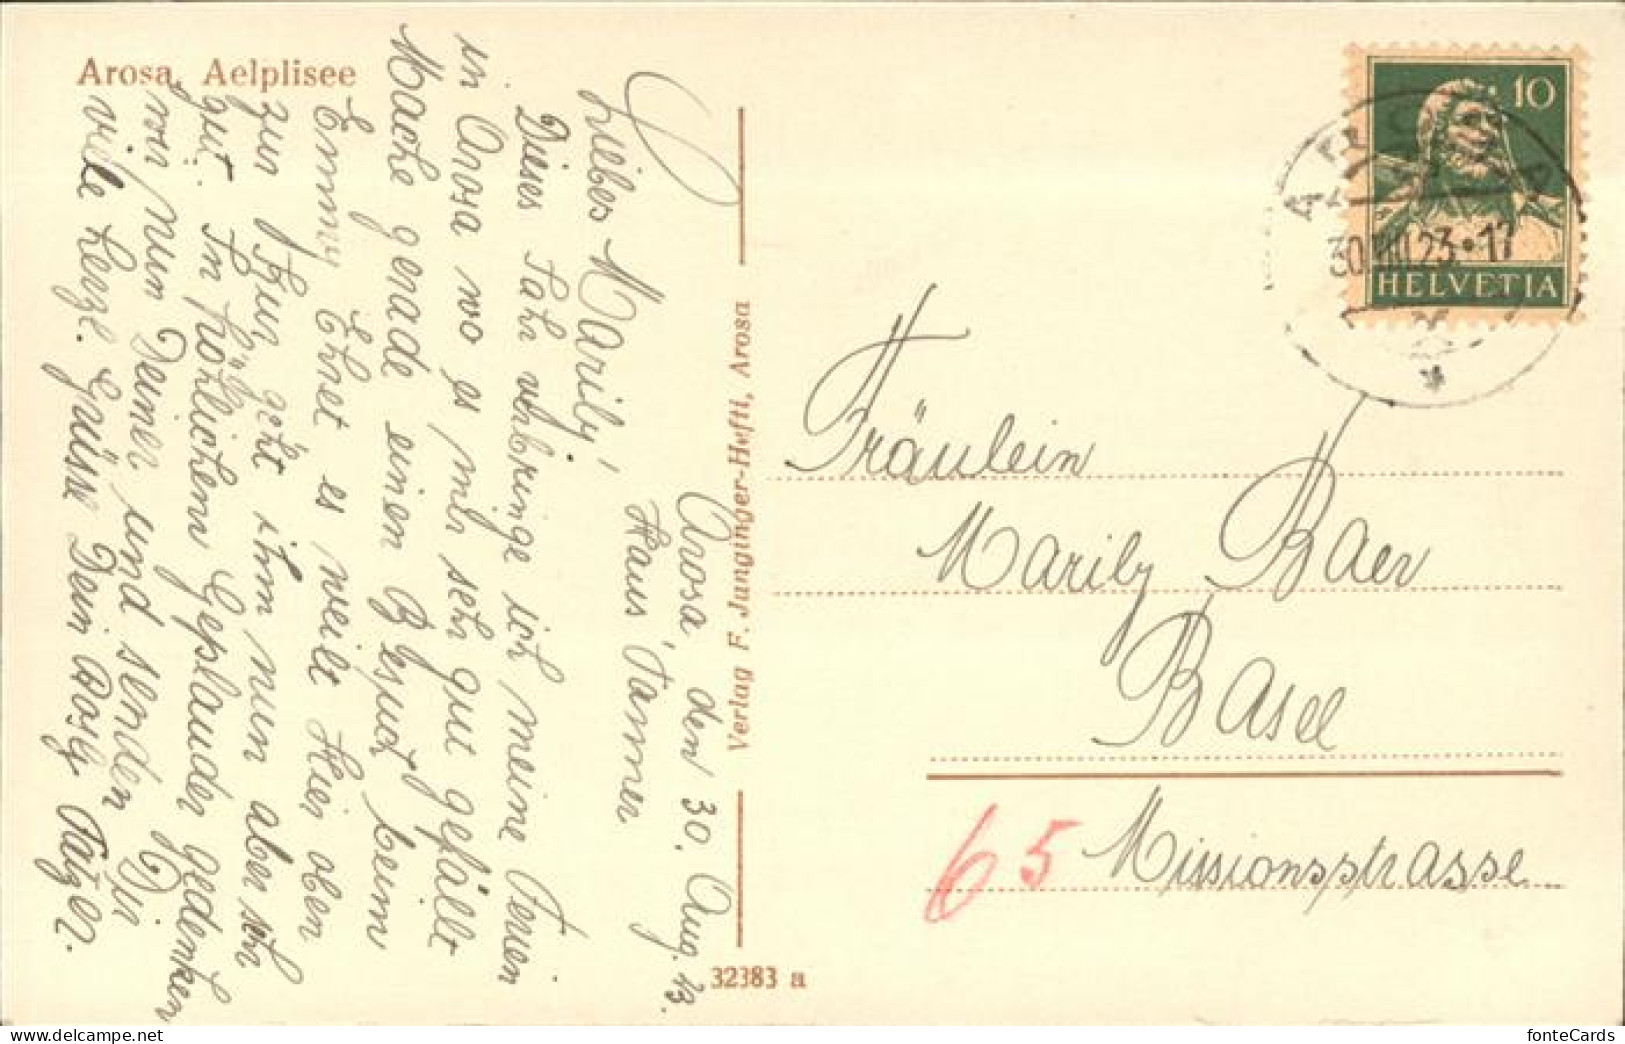 Arosa, Aelplisee
Arosa, den 30. Aug. 23.
Haus Tanner
Liebes Marily!
Dieses Jahr verbringe ich meine Ferien
in Arosa wo es mir sehr gut gefällt
Mache gerade einen Besuch beim
Emmy Ehret es weilt Hier oben
zur Kur, geht ihm nun aber sehr
gut. Im fröhlichem Geplauder gedenken
wir nun Deiner und senden Dir
viele herzl. Grüsse Dein Rosly
Verlag F. Junginger-Hefti, Arosa
32383 a
10
HELVETIA
AROSA
30.VIII.23.-17
Fräulein
Marily Baer
Basel
65 Missionsstrasse
fonteCards